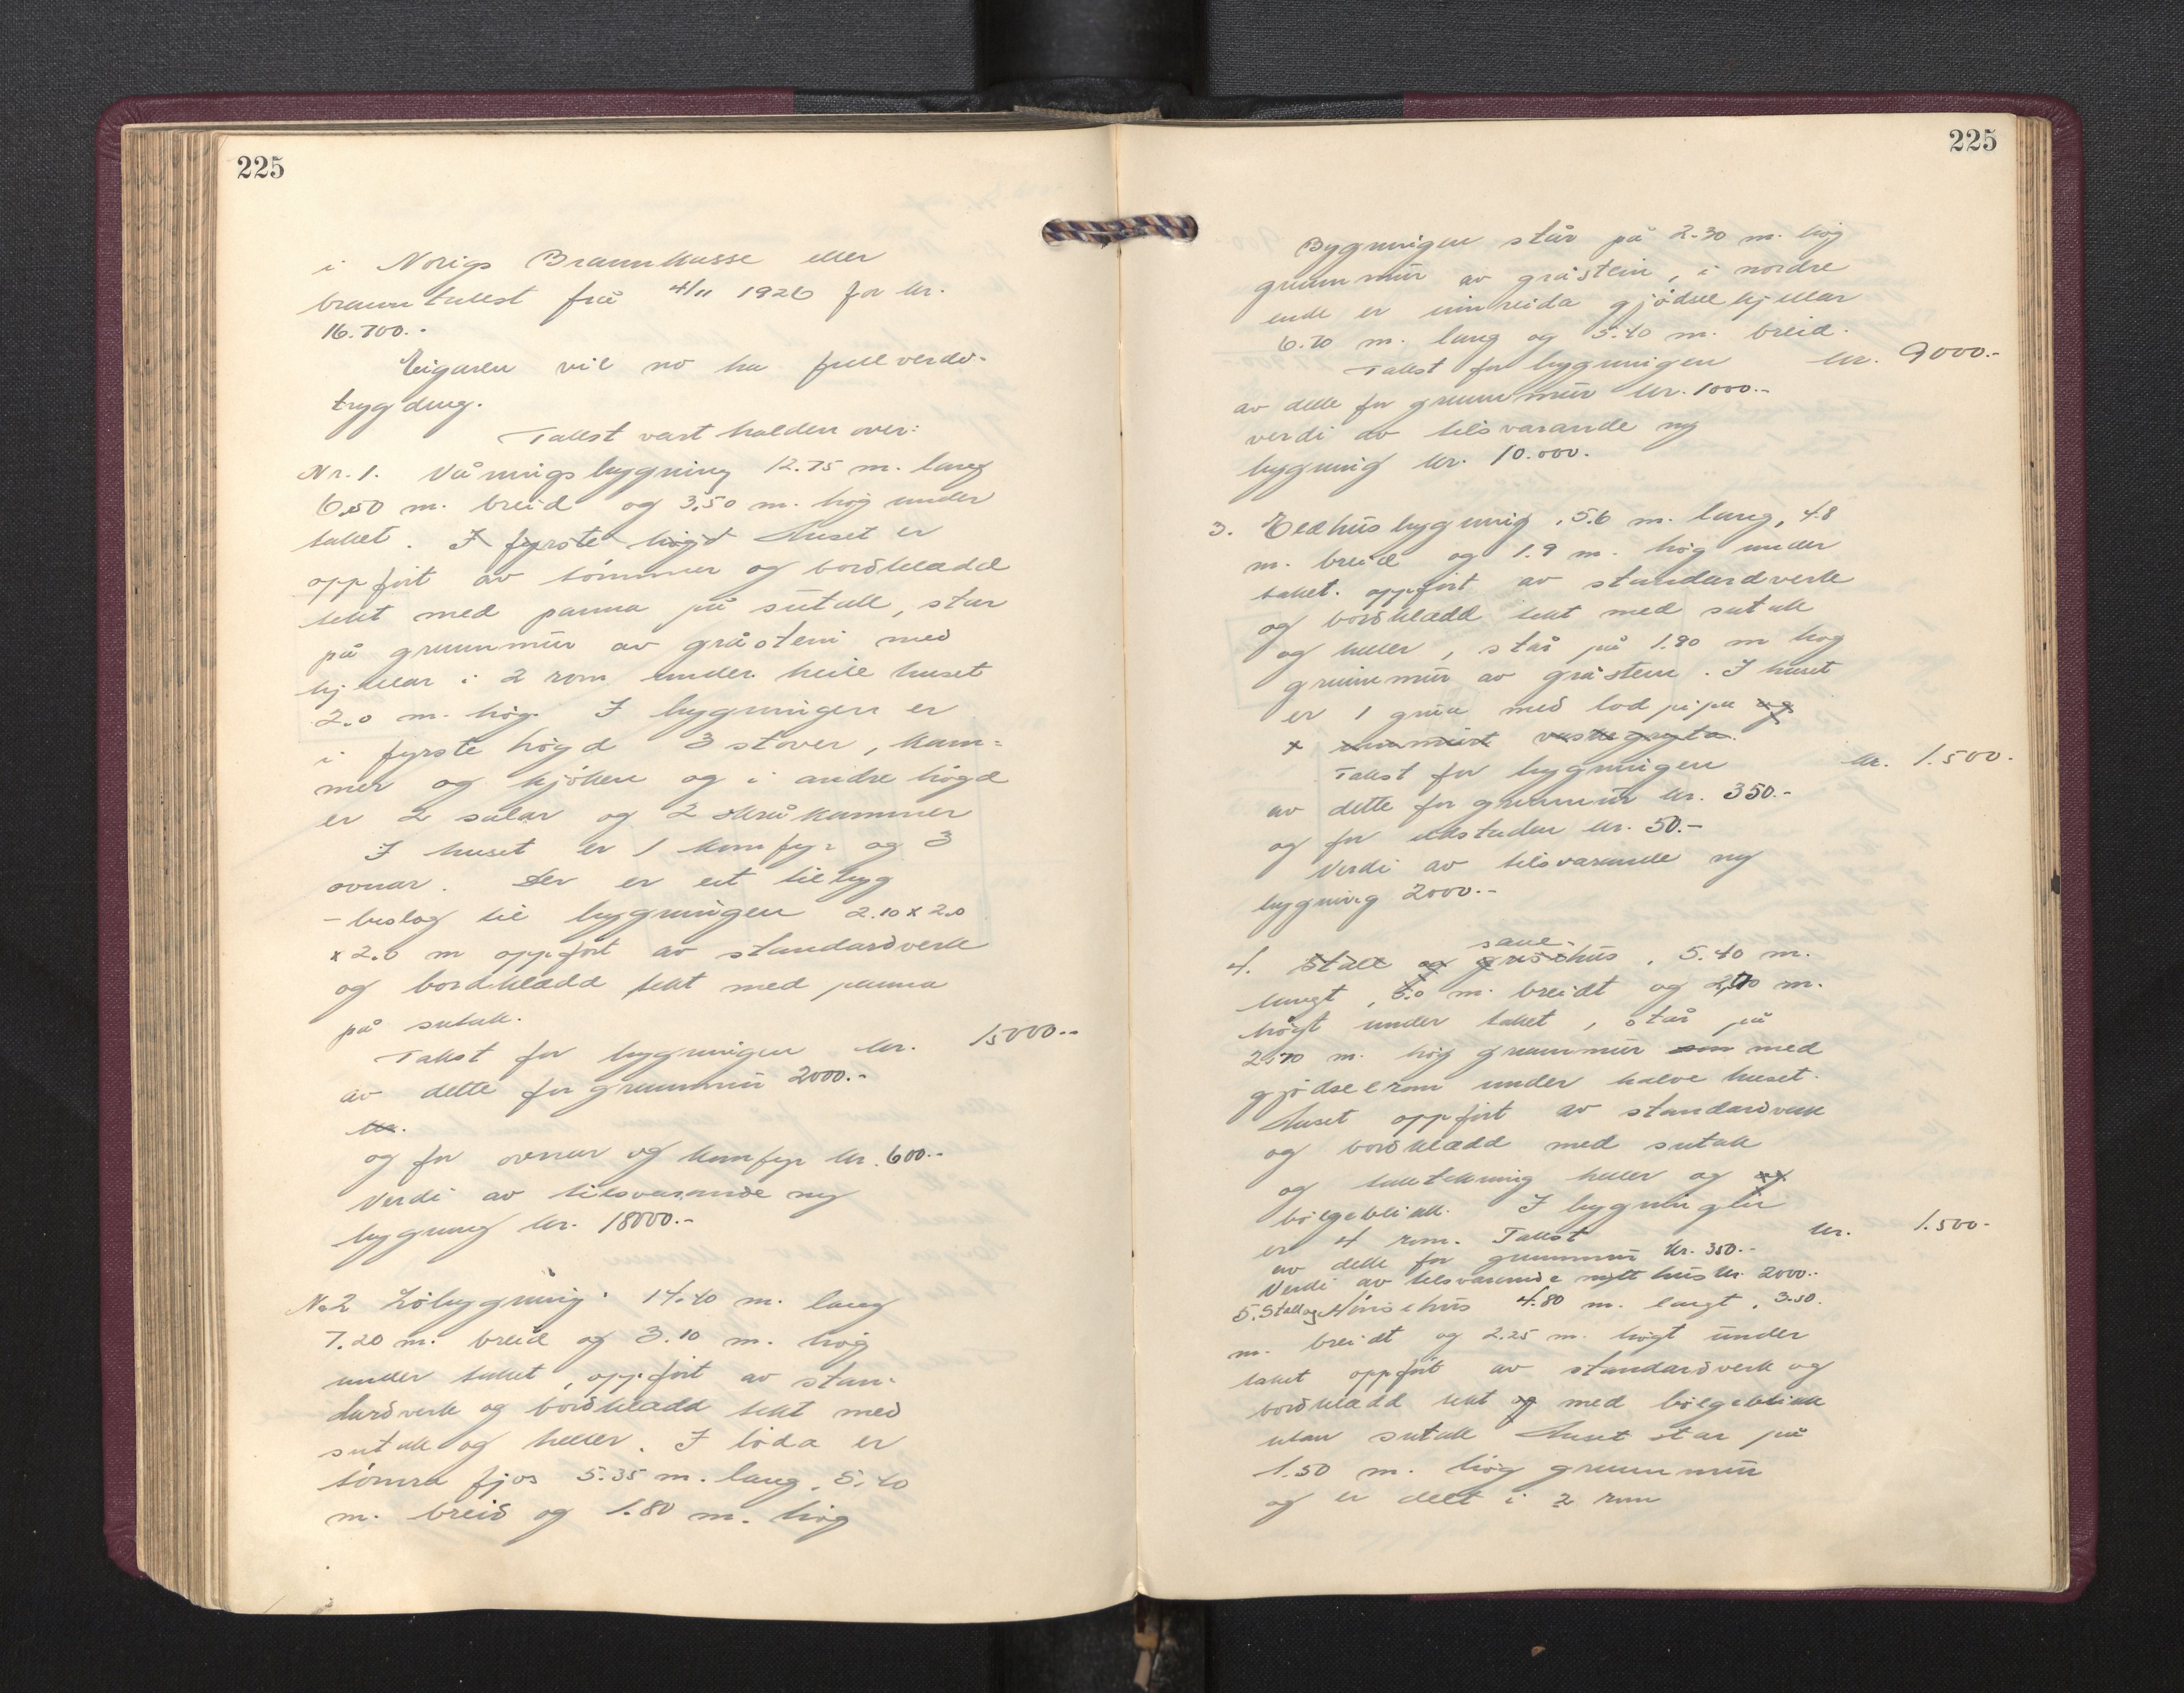 225
i Norigs Brannkasse etter
branntakst frå 4/11 1926 for kr.
16.700.-
Eigaren vil no ha full verdi-
trygding.
Takst vart halden over:
Nr. 1. Våningsbygning 12.75 m. lang
6.50 m. breid og 3.50 m. høg under
taket. I fyrste høgd Huset er
oppført av tømmer og bordklædd
tekt med panna på sutak, står
på grunnmur av gråstein med
kjellar i 2 rom under heile huset
2.0 m. høg. I bygningen er
i fyrste høgd 3 stover, kam-
mer og kjøken og i andre høgd
er 2 salar og 2 skråkammer
I huset er 1 komfyr og 3
ovnar. Der er eit tilbyg
-beslag til bygningen 2.10 x 2.0
x 2.0 m oppført av standardverk
og bordklædd tekt med panna
på sutak.
Takst for bygningen kr. 15000.-
av dette for grunnmur 2000.-
kr.
og for ovnar og komfyr kr. 600.-
Verdi av tilsvarande ny
bygning kr. 18000.-
No2 Løbygning. 14.40 m. lang
7.20 m. breid og 3.10 m. høg
under taket, oppført av stan-
dardverk og bordklædd tekt med
sutak og heller. I løda er
tømra fjos 5.35 m. lang, 5.40
m. breid og 1.80 m. høg
225
Bygningen står på 2.30 m. høg
grunnmur av gråstein, i nordre
ende er innreida gjødselkjellar
6.70 m. lang og 5.40 m. breid.
Takst for bygningen kr. 9000.-
av dette for grunnmur kr. 1000.-
verdi av tilsvarande ny
bygning kr. 10.000.
3. Eldhusbygning, 5.6 m. lang, 4.8
m. breid og 1.9 m. høg under
taket. oppført av standardverk
og bordklædd tekt med sutak
og heller, står på 1.90 m høg
grunnmur av gråstein. I huset
er 1 grua med lod pipa og
x innmurt vaskegryta.
Takst for bygningen kr. 1.500.
av dette for grunnmur kr. 350.-
og for eldstaden kr. 50.-
Verdi av tilsvarande ny
bygning 2000.-
saue-
4. Stall og grishus, 5.40 m.
langt, 5.0 m. breidt og 2,70 m.
høgt under taket, står på
2.70 m. høg grunnmur som med
gjødselrom under halve huset.
Huset oppført av standardverk
og bordklædd med sutak
og taktekning heller og og
bølgeblikk. I bygningen
er 4 rom. Takst kr. 1.500.-
av dette for grunnmur kr. 350.-
Verdi av tilsvarande nytt hus kr. 2000.-
5. Stall og Hønsehus 4.80 m. langt, 3.30.
m. breidt og 2.25 m. høgt under
taket oppført av standardverk og
bordklædd tekt og med bølgeblikk
utan sutak Huset står på
1.50 m. høg grunnmur
og er delt i 2 rom